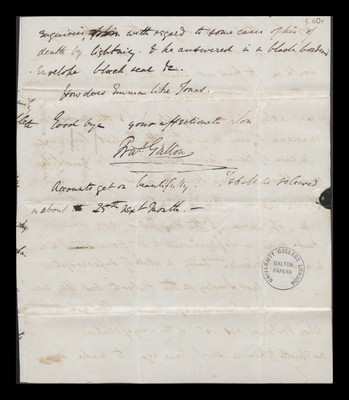 enquiries with regard to some cases of his of
death by lightning & he answered in a black bordered
Envelope black seal &c.
How does Emma like Jonas.
Good bye your affectionate Son
Fras. Galton
Accounts get on beautifully. I shall be released
about 25th next month. —
UNIVERSITY COLLEGE LONDON
GALTON
PAPERS